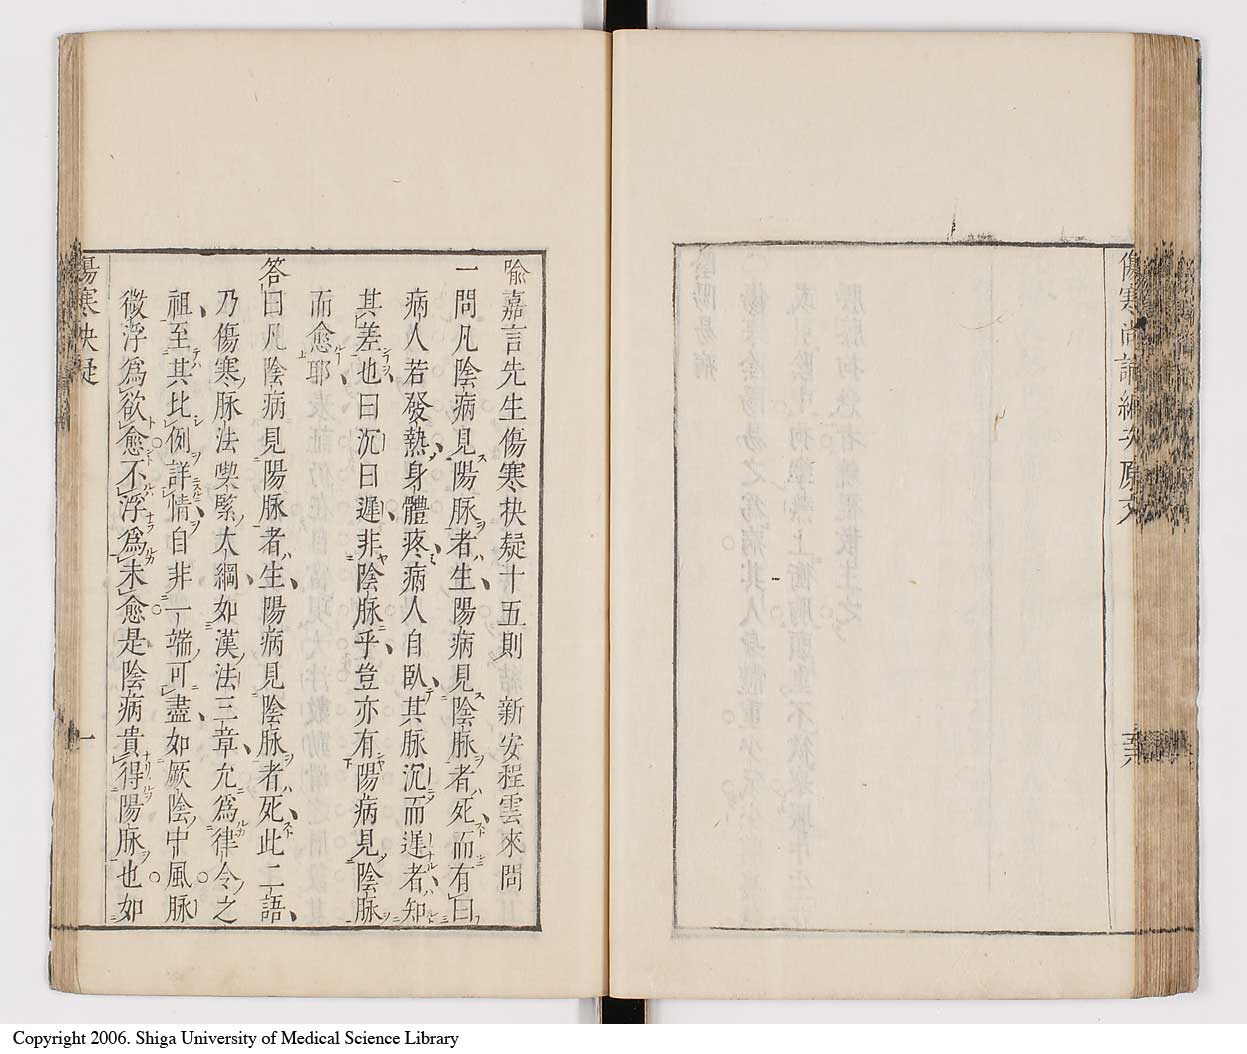 傷寒尚論編次原文
喩嘉言先生傷寒抉疑十五則　新安程雲來問
一問凡陰病見陽脉者生陽病見陰脉者死而有曰
病人若發熱身體疼病人自臥其脉沉而遲者知
其差也曰沉曰遲非陰脉乎豈亦有陽病見陰脉
而愈耶
答曰凡陰病見陽脉者生陽病見陰脉者死此二語
乃傷寒脉法喫緊大綱如漢法三章允爲律令之
祖至其比例詳情自非一端可盡如厥陰中風脉
微浮爲欲愈不浮爲未愈是陰病貴得陽脉也如
傷寒抉疑
一
Copyright 2006. Shiga University of Medical Science Library